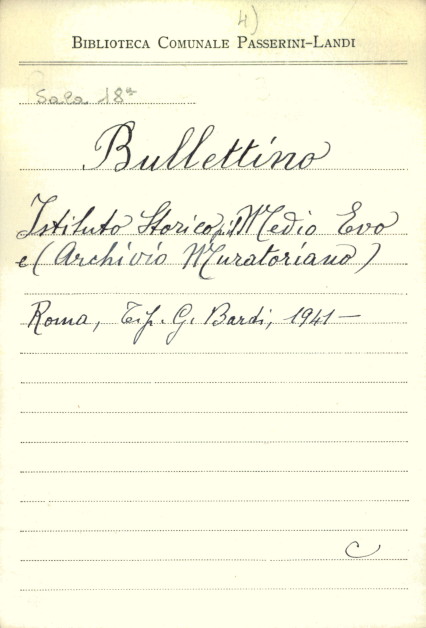 4)
BIBLIOTECA COMUNALE PASSERINI-LANDI
Sala 18ª
Bullettino
Istituto Storico p. il Medio Evo
e (Archivio Muratoriano)
Roma, Tip. G. Bardi, 1941 —
C